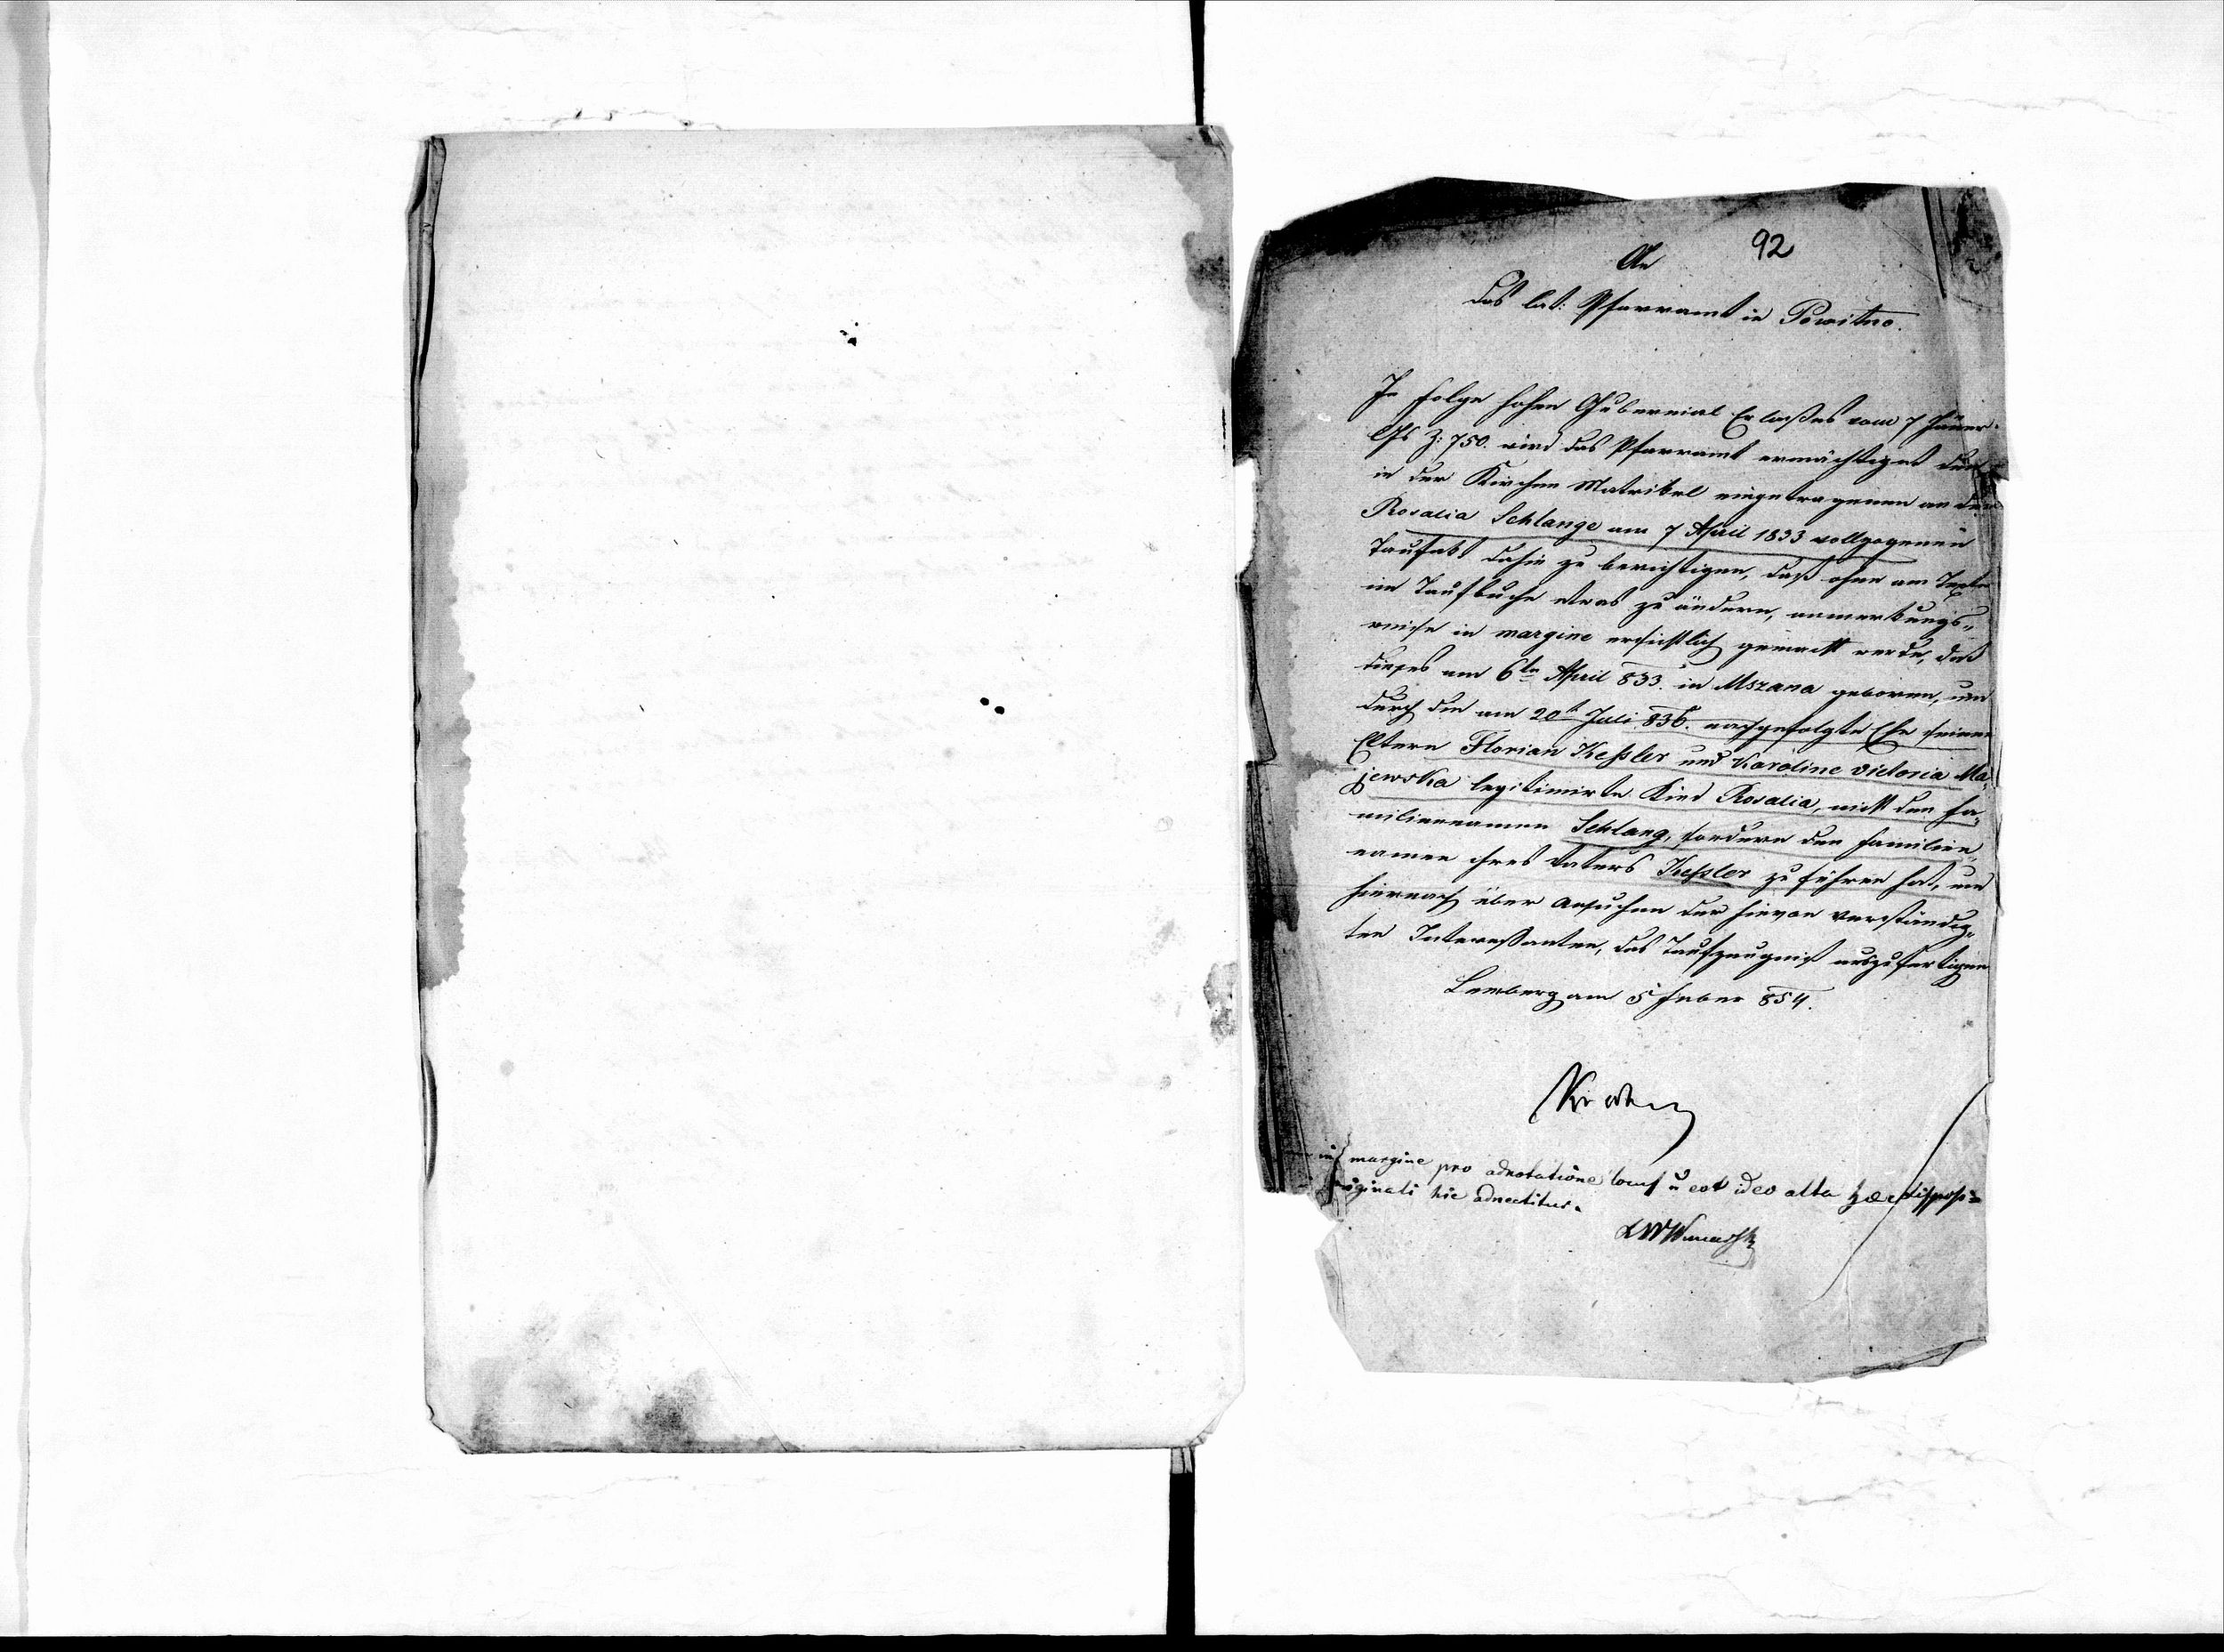 92
An
das lat: Pfarramt in Powitno.
In Folge hohen Gubernial Erlaßes vom 7 Jäner
Z: 750. wird das Pfarramt ermächtiget den
in der Kirchen Matrikel eingetragenen an der
Rosalia Schlange am 7 April 1833 vollzogenen
Taufakt dahin zu berichtigen, daß ohne am Texte
im Taufbuche etwas zu ändern, anmerkungs„
weise in margine ersichtlich gemacht werde, daß
dieses am 6ten April 833. in Mszana geboren, und
durch die am 20t Juli 836. nachgefolgte Ehe seiner
Eltern Florian Keßler und Karoline Victoria Ma„
jewska legitimirte Kind Rosalia, nicht den Fa„
miliennamen Schlang, sondern den Familien„
namen ihres Vaters Keßler zu führen hat, und
hiernach über Ansuchen der hievon verständig„
ten Interessanten, das Taufzeugniß auszufertigen
Lemberg am 5 Feber 854.
in margine pro adnotatione est ideo alta haec disposi=
originali hic adnectitur.